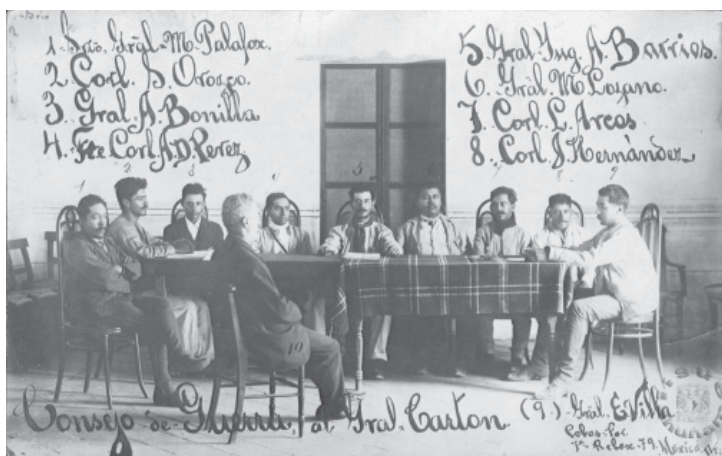 1. Srio. Gral. M. Palafox.
2. Corl. S. Orozco.
3. Gral. A. Bonilla
4. Tte Corl. A. D. Perez
5. Gral. Ing. A. Barrios.
6. Gral. M. Lozano.
7. Corl. L. Arcos
8. Corl. J. Hernández
1 2 3 4 5 6 7 8 9
10
Consejo de Guerra, al Gral. Carton. (9.) Gral. E. Villa
Cobos-
7a Relox-79. México,